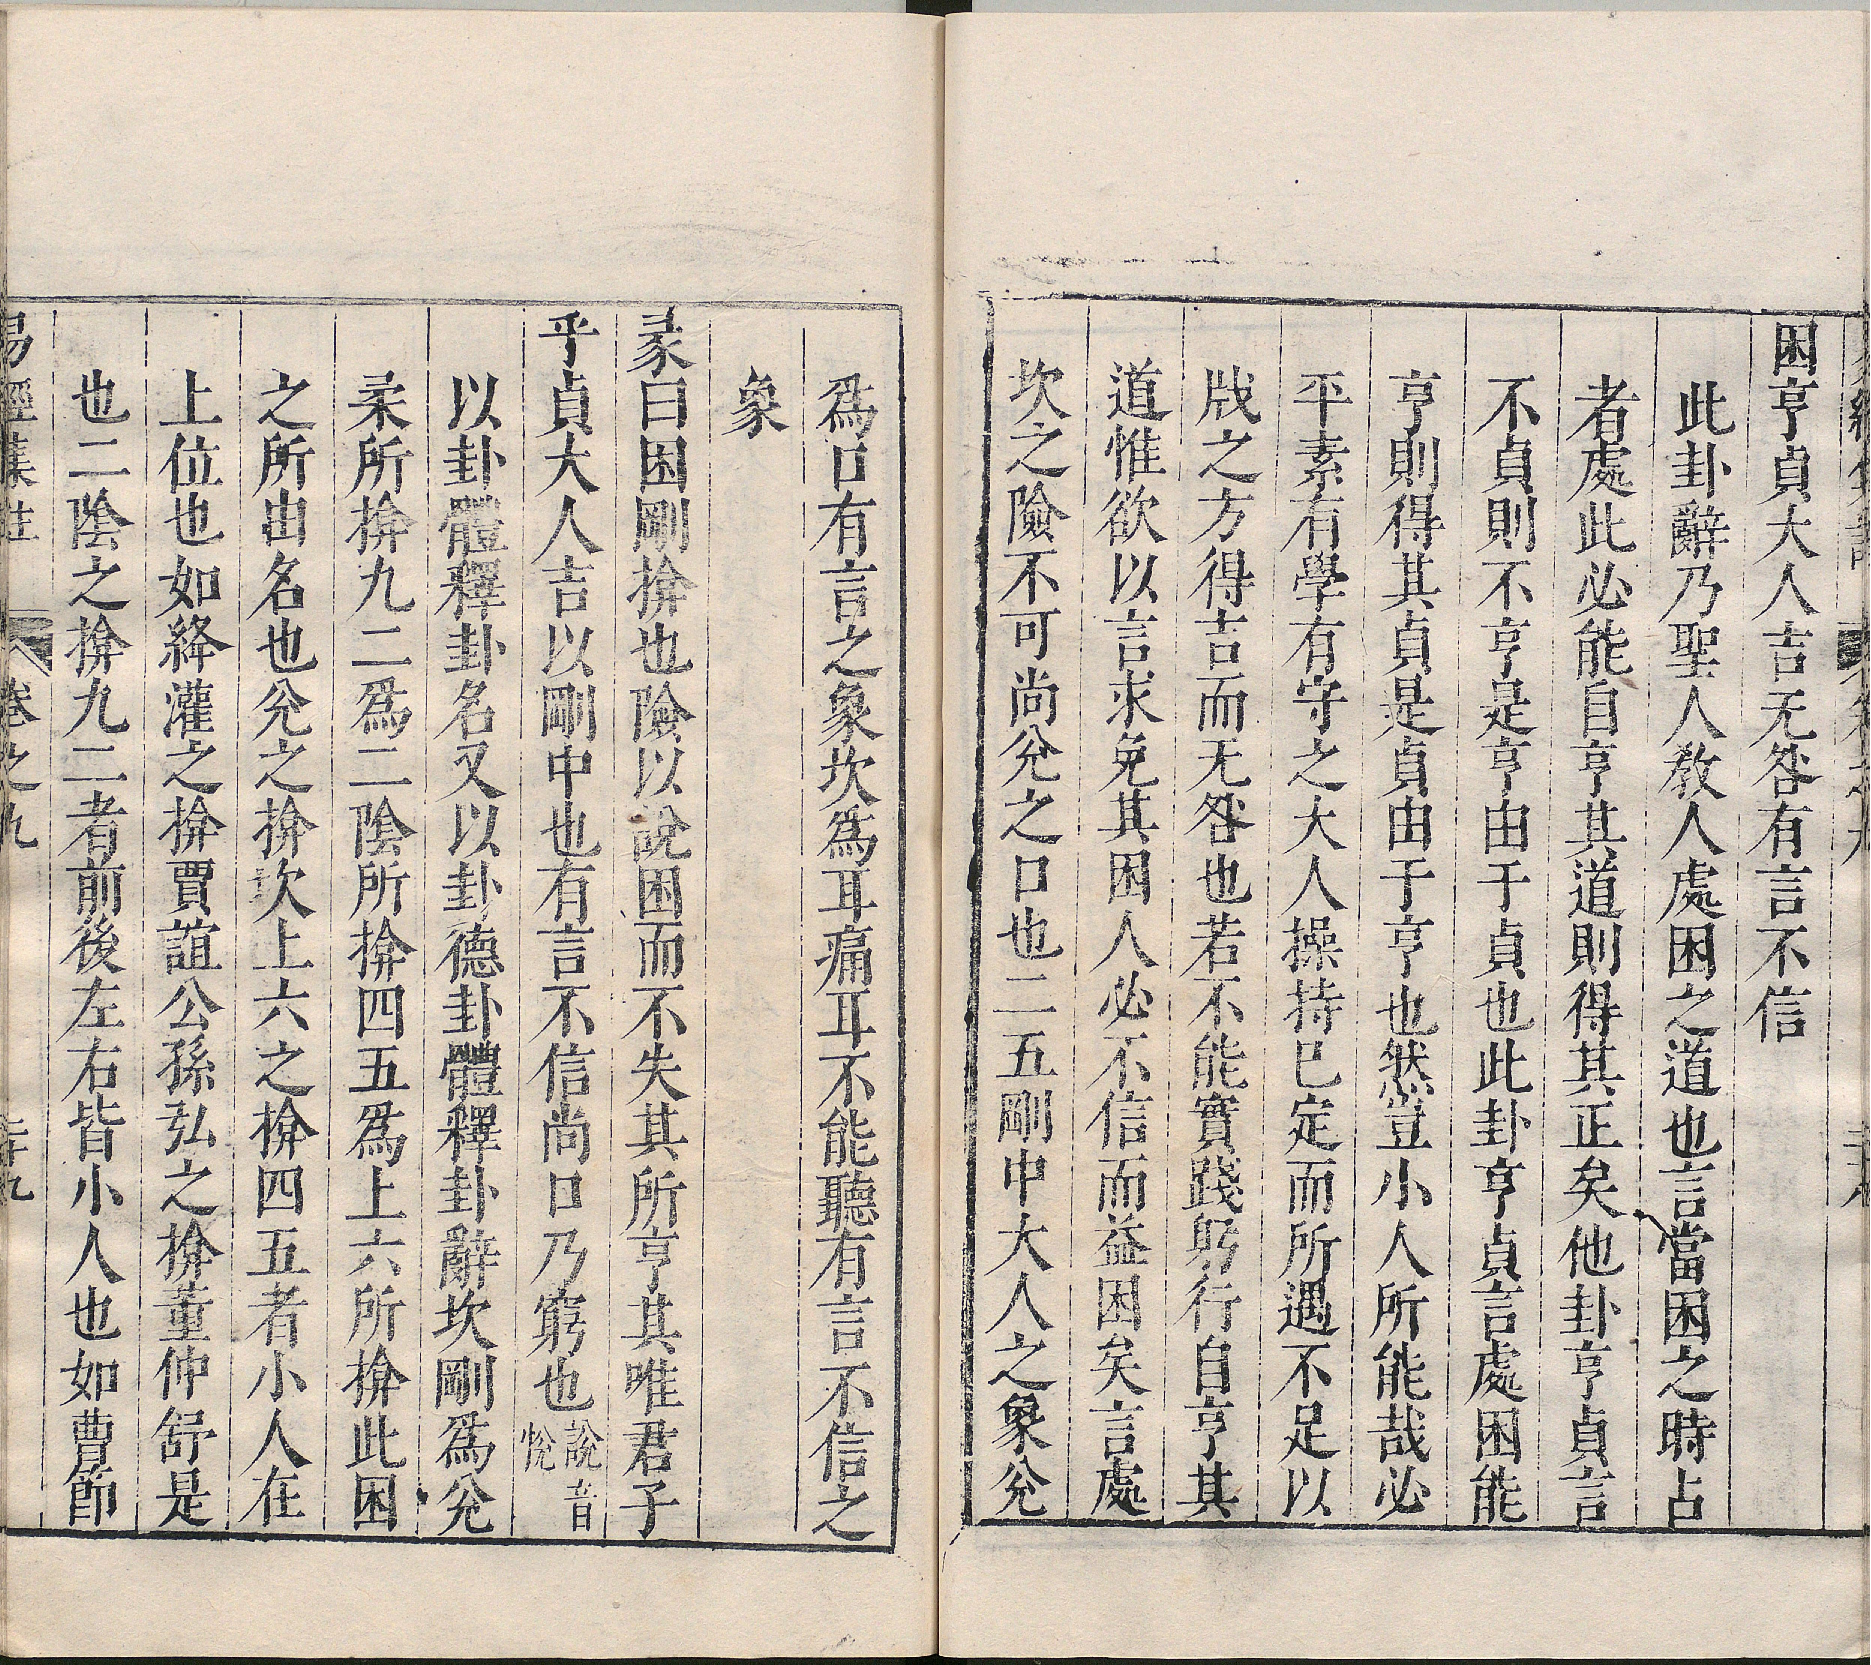 困亨貞大人吉无咎有言不信
此卦辭乃聖人教人處困之道也言當困之時占
者處此必能自亨其道則得其正矣他卦亨貞言
不貞則不亨是亨由于貞也此卦亨貞言處困能
亨則得其貞是貞由于亨也然豈小人所能哉必
平素有學有守之大人操持已定而所遇不足以
戕之方得吉而无咎也若不能實踐躬行自亨其
道惟欲以言求免其困人必不信而益困矣言處
坎之險不可尚兊之口也二五剛中大人之象兊
爲口有言之象坎爲耳痛耳不能聽有言不信之
象
彖曰困剛揜也險以說困而不失其所亨其唯君子
乎貞大人吉以剛中也有言不信尚口乃窮也說音悅
以卦體釋卦名又以卦德卦體釋卦辭坎剛爲兊
柔所揜九二爲二陰所揜四五爲上六所揜此困
之所由名也兊之揜坎上六之揜四五者小人在
上位也如絳灌之揜賈誼公孫弘之揜董仲舒是
也二陰之揜九二者前後左右皆小人也如曹節
易經集註 卷之九 二十九